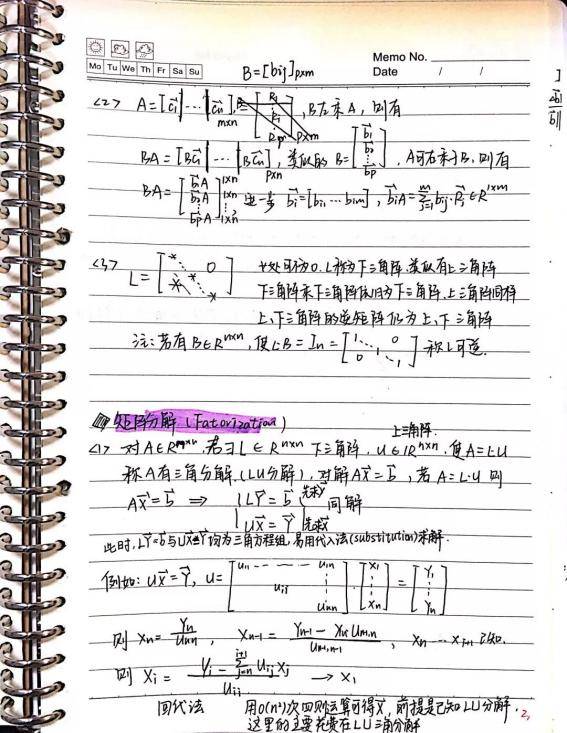 Memo No.
Mo Tu We Th Fr Sa Su
Date / /
B=[bij]p×m
<2> A=[c⃗1|⋯|c⃗n]m×n=[R1 ⋮ Ri ⋮ Rm]p×m, B左乘A, 则有
BA=[Bc⃗1|⋯|Bc⃗n]p×n, 类似的 B=[b⃗1 b⃗2 ⋮ b⃗p], A可右乘于B, 则有
BA=[b⃗1A b⃗2A ⋮ b⃗pA] 1×n 1×n ⋮ 1×n, 进一步 b⃗i=[bi1⋯bim], b⃗iA=∑j=1m bij·R⃗j∈R1×m
<3> L=[* 0 * * *] *处可为0. L称为下三角阵. 类似有上三角阵
下三角阵乘下三角阵依旧为下三角阵. 上三角阵同样
上、下三角阵的逆矩阵仍为上、下三角阵
注: 若有B∈Rn×n, 使LB=In=[1 ⋯ 0 ⋮ 1 ⋮ 0 ⋯ 1] 称L可逆.
矩阵分解 (Fatorization)
上三角阵.
<1> 对A∈Rn×n, 若∃L∈Rn×n 下三角阵, U∈Rn×n, 使A=LU
称A有三角分解.(LU分解), 对解Ax⃗=b⃗, 若A=L·U 则
Ax⃗=b⃗ ⇒ {LY⃗=b⃗ 先求Y⃗ 同解
Ux⃗=Y⃗ 后求x⃗
此时, LY⃗=b⃗与Ux⃗=Y⃗均为三角方程组, 易用代入法(substitution)求解.
例如: Ux⃗=Y⃗, U=[u11 --- u1n uij unn]·[x1 ⋮ xn]=[Y1 ⋮ Yn]
则 xn=Yn/unn, xn-1=(Yn-1 - xn un-1,n)/un-1,n-1, xn⋯xi+1已知.
则 xi=(Yi - ∑j=ni+1 uij xj)/uii → x1
回代法 用O(n²)次四则运算可得x⃗, 前提是已知LU分解.
这里的主要花费在LU三角分解
2,